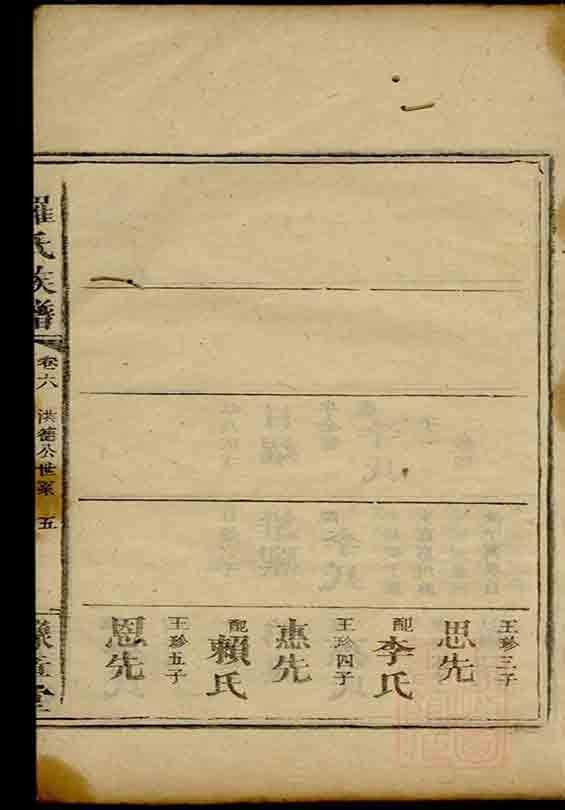 王珍三子
思先
配
李氏
王珍四子
惠先
配
賴氏
王珍五子
恩先
羅氏族譜
卷六
洪德公世系
五
豫章堂